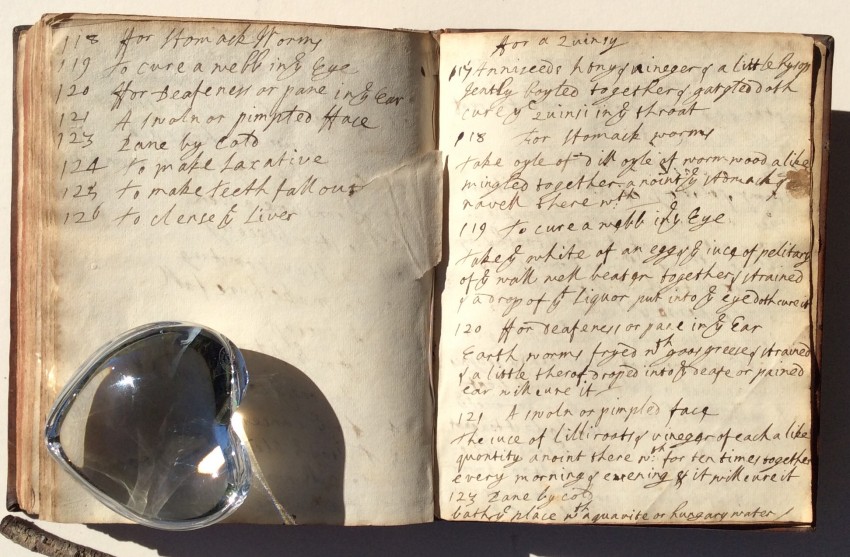 118 For Stomack Worms
119 To cure a webb in yͤ Eye
120 For Deafeness or pane in yͤ Ear
121 A swoln or pimpled fface
123 Pane by Cold
124 To make Laxative
125 To make teeth fall out
126 To clense yͤ Liver
For a Quinsy
117 Anniseeds hony & vineger & a little hysop
gently boyled together & gargled doth
cure yͤ Quinsi in yͤ throat
118 For Stomack worms
Take oyle of Dill oyle of wormwood alike
mingled together anoint yͤ stomack &
navell there wᵗʰ
119 To cure a webb in yͤ Eye
Take yͤ white of an egg & yͤ iuce of pelitary
of yͤ wall well beaten together & strained
& a drop of yͤ liquor put into yͤ eye doth cure it
120 For Deafeness or pane in yͤ Ear
Earth worms fryed wᵗʰ goos greese & strained
& a little therof droped into yͤ deafe or pained
ear will cure it
121 A swoln or pimpled face
The iuce of Lilli roots & vineger of each a like
quontity anoint there wᵗʰ for ten times together
every morning & evening & it will cure it
123 Pane by cold
bath yͤ place wᵗʰ aquavite or hungary water